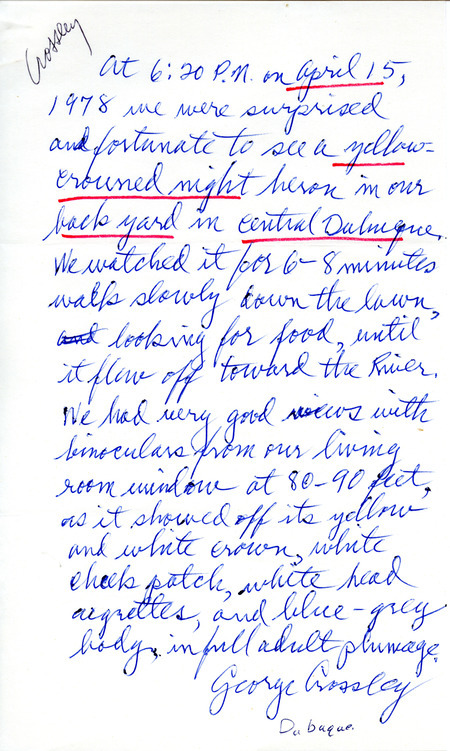 Crossley
At 6:20 P.M. on April 15,
1978 we were surprised
and fortunate to see a yellow-
crowned night heron in our
back yard in central Dubuque.
We watched it for 6-8 minutes
walk slowly down the lawn,
and looking for food, until
it flew off toward the River.
We had very good views with
binoculars from our living
room window at 80-90 feet,
as it showed off its yellow
and white crown, white
cheek patch, white head
aigrettes, and blue-grey
body, in full adult plumage.
George Crossley
Dubuque.